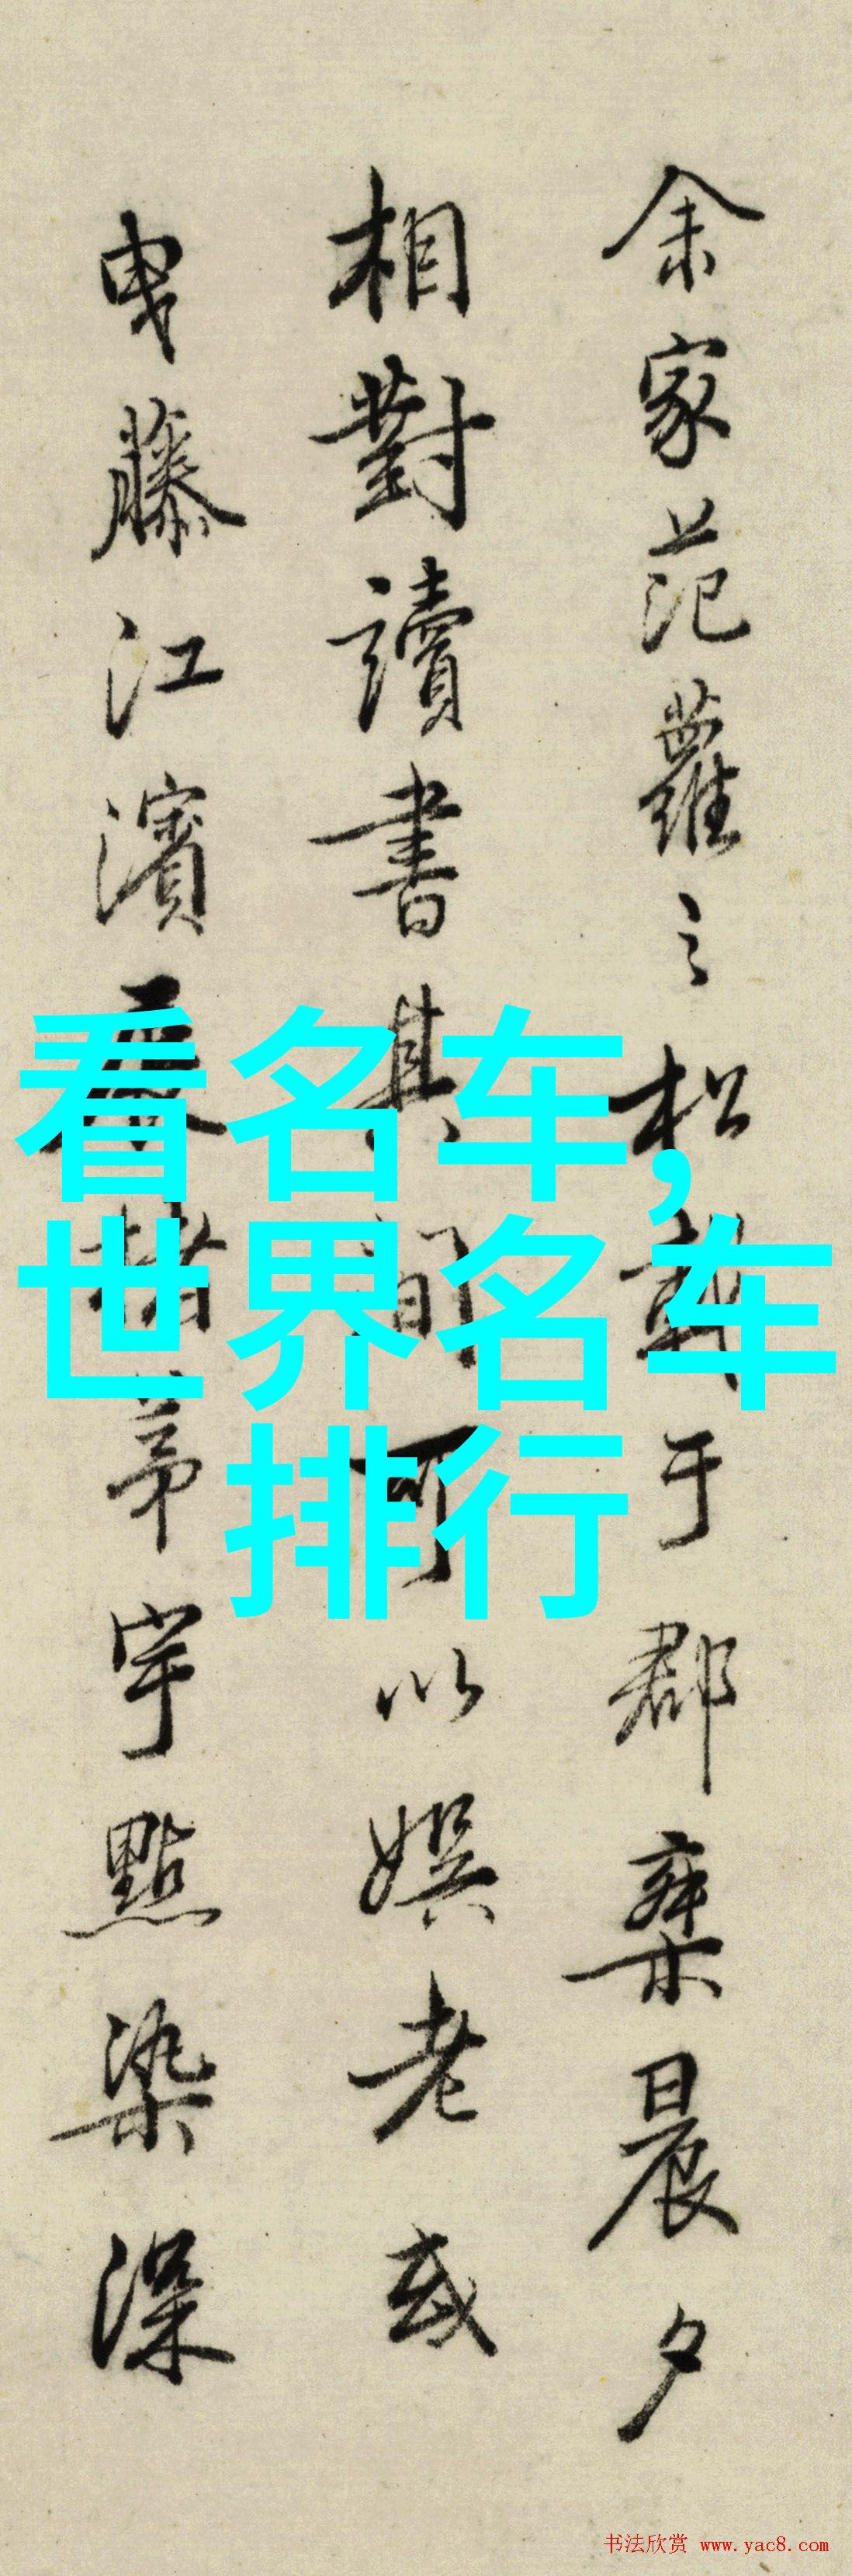 余家范蘿之松于郡晨夕
相對讀書其間可以娯老或
曳藤江濱茅宇點染深
看名车,
世界名车
排行
书法欣赏 www.yac8.com